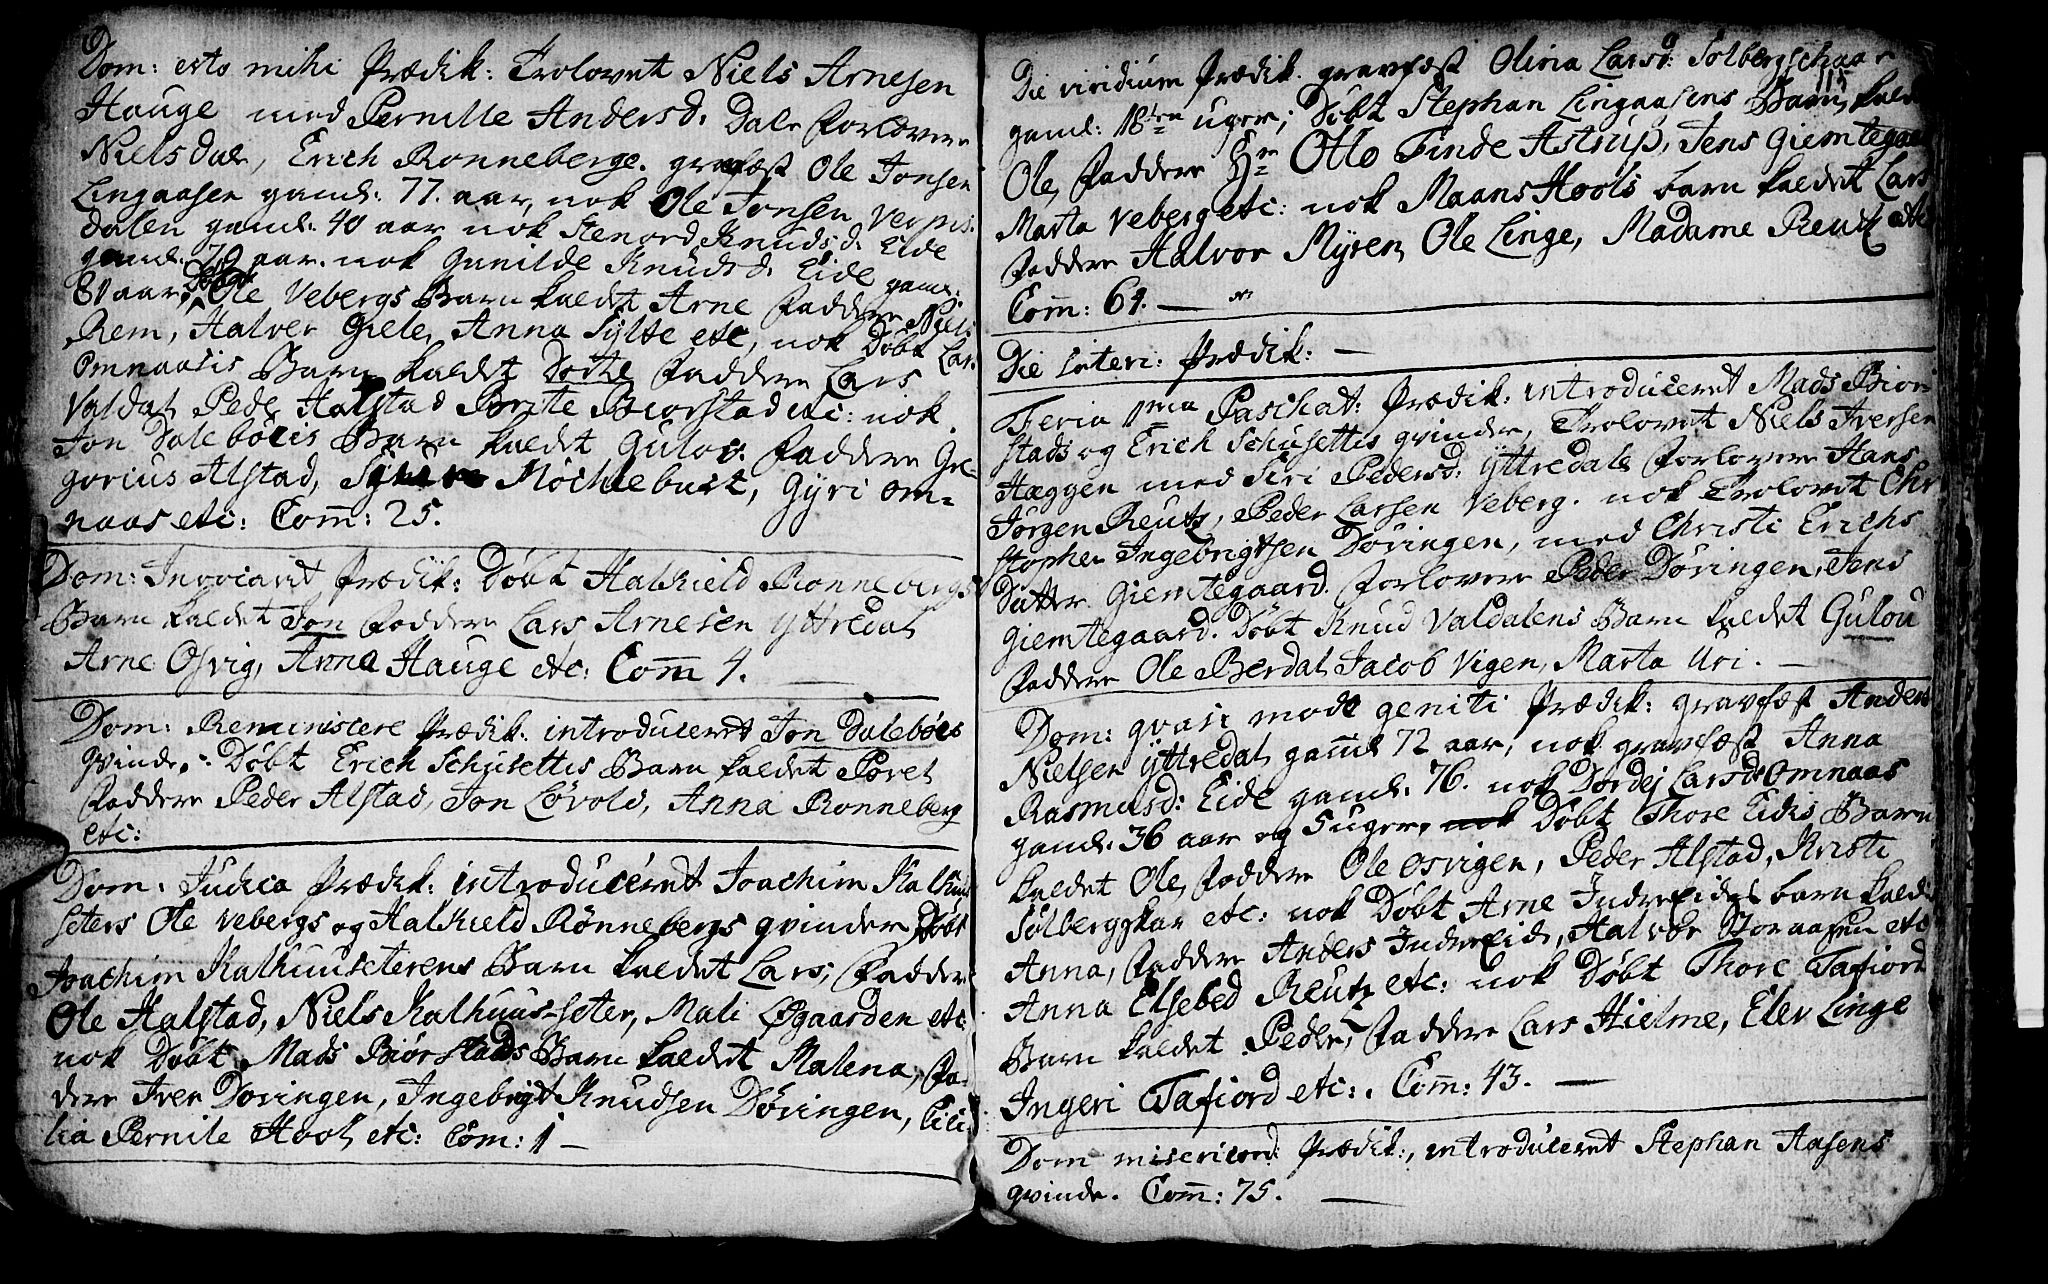 Dom: esto mihi Prædik: Trolovet Niels Arnesen
Hauge med Pernille Andersd. Dale Forlovere
Nielsdal, Erich Ronneberge. gravfæst Ole Jonsen
Lingaasen gaml: 77. aar, nok Ole Jonsen
dalen gaml: 40 aar nok Knudsd: Eide
gaml: 70 aar. nok Gunilde Knudsd. Eide gaml:
81 aar. Døbt Ole Vebergs Barn kaldet Arne Faddere Niels
Rem, Halver Giele, Anna Sylte etc, nok Døbt Lars
Omnaasis Barn kaldet Faddere Lars
Valdal Peder Halstad Borstad etc: nok
Jon Dalebøeis Barn kaldet Gulov. Faddere Gre-
gorius Alstad, Møchlebust, Gyri Om-
naas etc: Com̄: 25.
Dom: Invocavit Prædik: Døbt Halkield Ronnebergs
Barn kaldet Jon Faddere Lars Arnesen Yttredal
Arne Osvig, Anna Hauge etc: Com̄ 4.
Dom: Reminiscere Prædik: introduceret Jon Dalebøes
qvinde. Døbt Erich Schusettis Barn kaldet Peret
Faddere Peder Alstad, Jon Løvold, Anna Ronneberg
etc:
Dom: Judica Prædik: introduceret Joachim Kalhuus
seters Ole Vebergs og Halkield Rønnebergs qvinder Døbt
Joachim Kalhuusseterens Barn kaldet Lars, Faddere
Ole Halstad, Niels Kalhuus-seter, Mali Øgaarden etc
nok Døbt Mads Biørstads Barn kaldet Malena, Fa-
dere Iver Døvingen, Ingebrigt Knudsen Døvingen, Cici
lia Pernile Hool etc: Com: 1 —
Die viridium Prædik. gravfæst Olina Larsd: Solbergschaar
115
gaml: 18ten uger; Døbt Stephan Lingaasens Barn, kaldet
Ole, Faddere Hrn Otto Finde Astrup, Jens Giemtegaard
Marta Veberg etc: nok Maans Hools barn kaldet Lars
Faddere Halvor Myren, Ole Linge, Madame Reutz etc
Com̄: 64. —
Die Prædik: —
Feria 1ma Paschat: Prædik: introduceret Mads Biør
stads og Erich Schusettis qvinder, Trolovet Niels Iversen
Hæggen med Siri Pedersd: Yttredal, Forlovere Hans
Jørgen Reutz, Peder Larsen Veberg. nok Trolovet Chri
stopher Ingebrigtsen Døvingen, med Christi Erichs
Datter Giemtegaard. Forlovere Peder Døvingen, Jens
Giemtegaard. Døbt Knud Valdalens Barn kaldet Gulou
Faddere Ole Berdal, Jacob Vigen, Marta Uri. —
Dom: qvasi mode geniti Prædik: gravfæst Anders
Nielsen Yttredal gaml 72 aar, nok gravfæst Anna
Rasmusd: Eide gaml. 76. nok Dordej Larsd: Omnaas
gaml. 36 aar og 5 uger, nok Døbt Thore Eidis Barn
kaldet Ole, Faddere Ole Osvigen, Peder Alstad, Kristi
Sølbergskar etc: nok Døbt Arne Indre Eides barn kaldet
Anna, Faddere Anders Indre Eide, Halvor Storaasen etc
Anna Elsebed Reutz etc: nok Døbt Thore Tafiord
Barn kaldet Peder, Faddere Lars Hielme, Elev Linge
Ingeri Tafiord etc:. Com̄: 43. —
Dom misericord: Prædik:, introduceret Stephan Aasens
qvinde. Com̄: 75. —